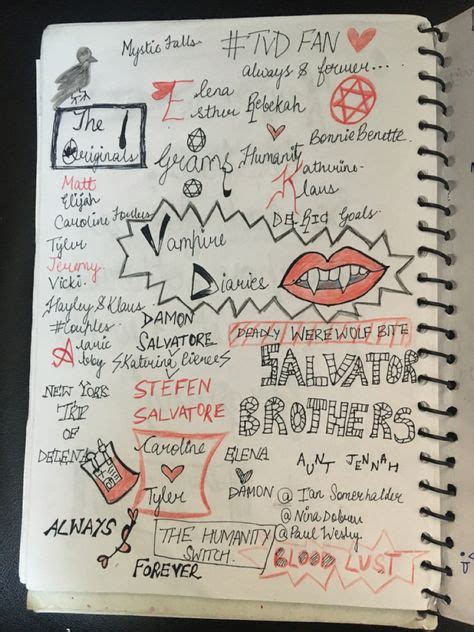 Mystic Falls
#TVD FAN
always & forever...
Elena
Esther Rebekah
The Originals
Grams
Humanity
Bonnie Benette
Katherine
Klaus
Matt
Elijah
Caroline
Tyler
Jeremy
Vicki
Goals
Vampire
Diaries
Hayley & Klaus
Alaric
Abby
DAMON
SALVATORE
Katerina
DEADLY WEREWOLF BITE
SALVATOR
BROTHERS
NEW YORK
TRIP
OF
DELENA
STEFEN
SALVATORE
Caroline
Tyler
ELENA
DAMON
AUNT JENNAH
@ Ian Somerhalder
@Nina Dobrev
@Paul Wesley
ALWAYS
FOREVER
THE HUMANITY
SWITCH.
BLOOD LUST